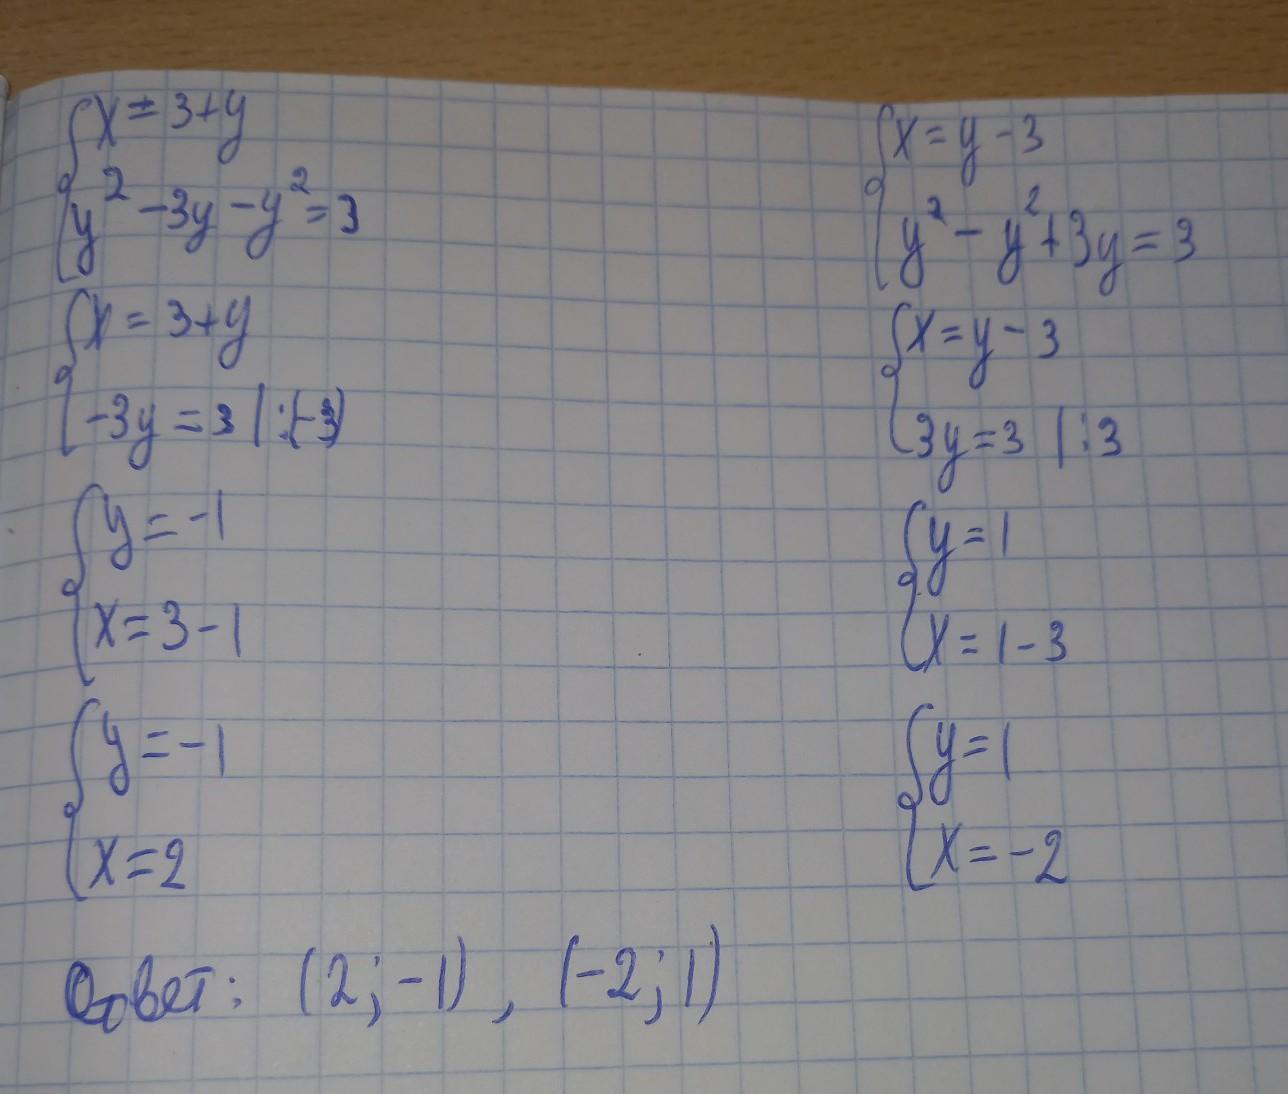 x = 3+y
y² -3y -y² = 3
x = 3+y
-3y = 3 | :(-3)
y = -1
x = 3-1
y = -1
x = 2
x = y - 3
y² - y² + 3y = 3
x = y - 3
3y = 3 | :3
y = 1
x = 1 - 3
y = 1
x = -2
Ответ: (2; -1), (-2; 1)